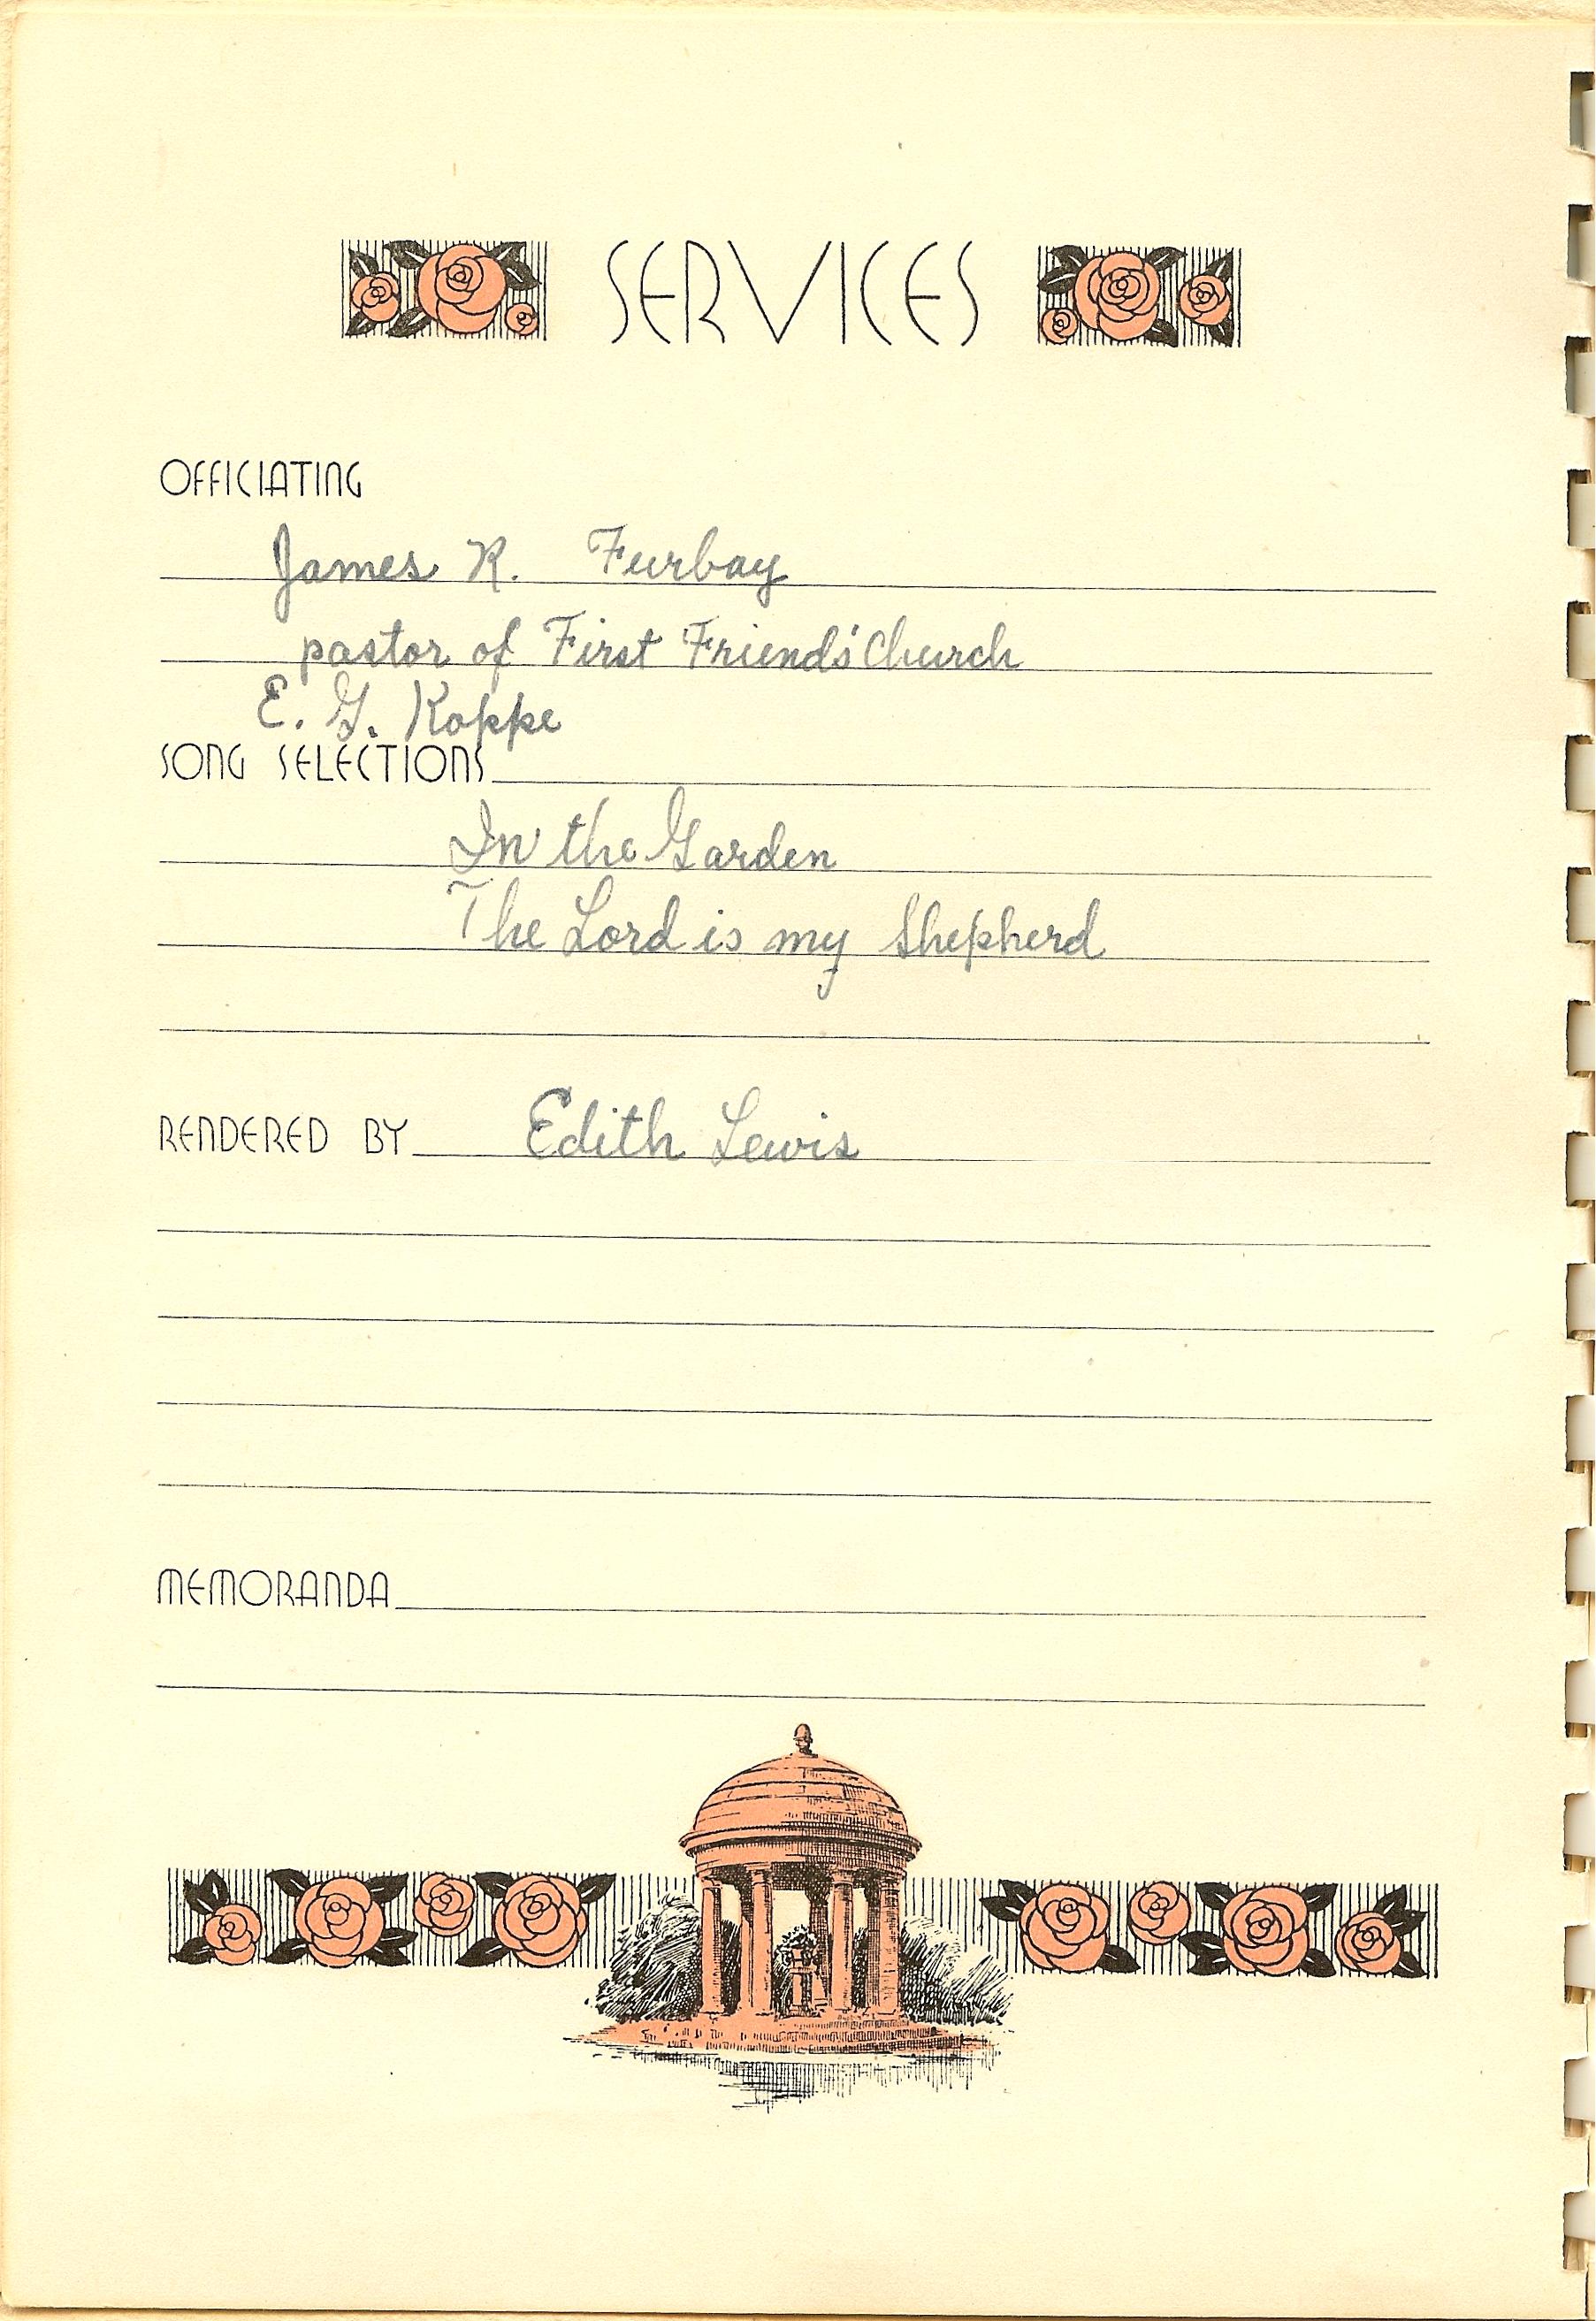 SERVICES
OFFICIATING
James R. Furbay
pastor of First Friends' Church
E. G. Koppe
SONG SELECTIONS
In the Garden
The Lord is my Shepherd
RENDERED BY Edith Lewis
MEMORANDA